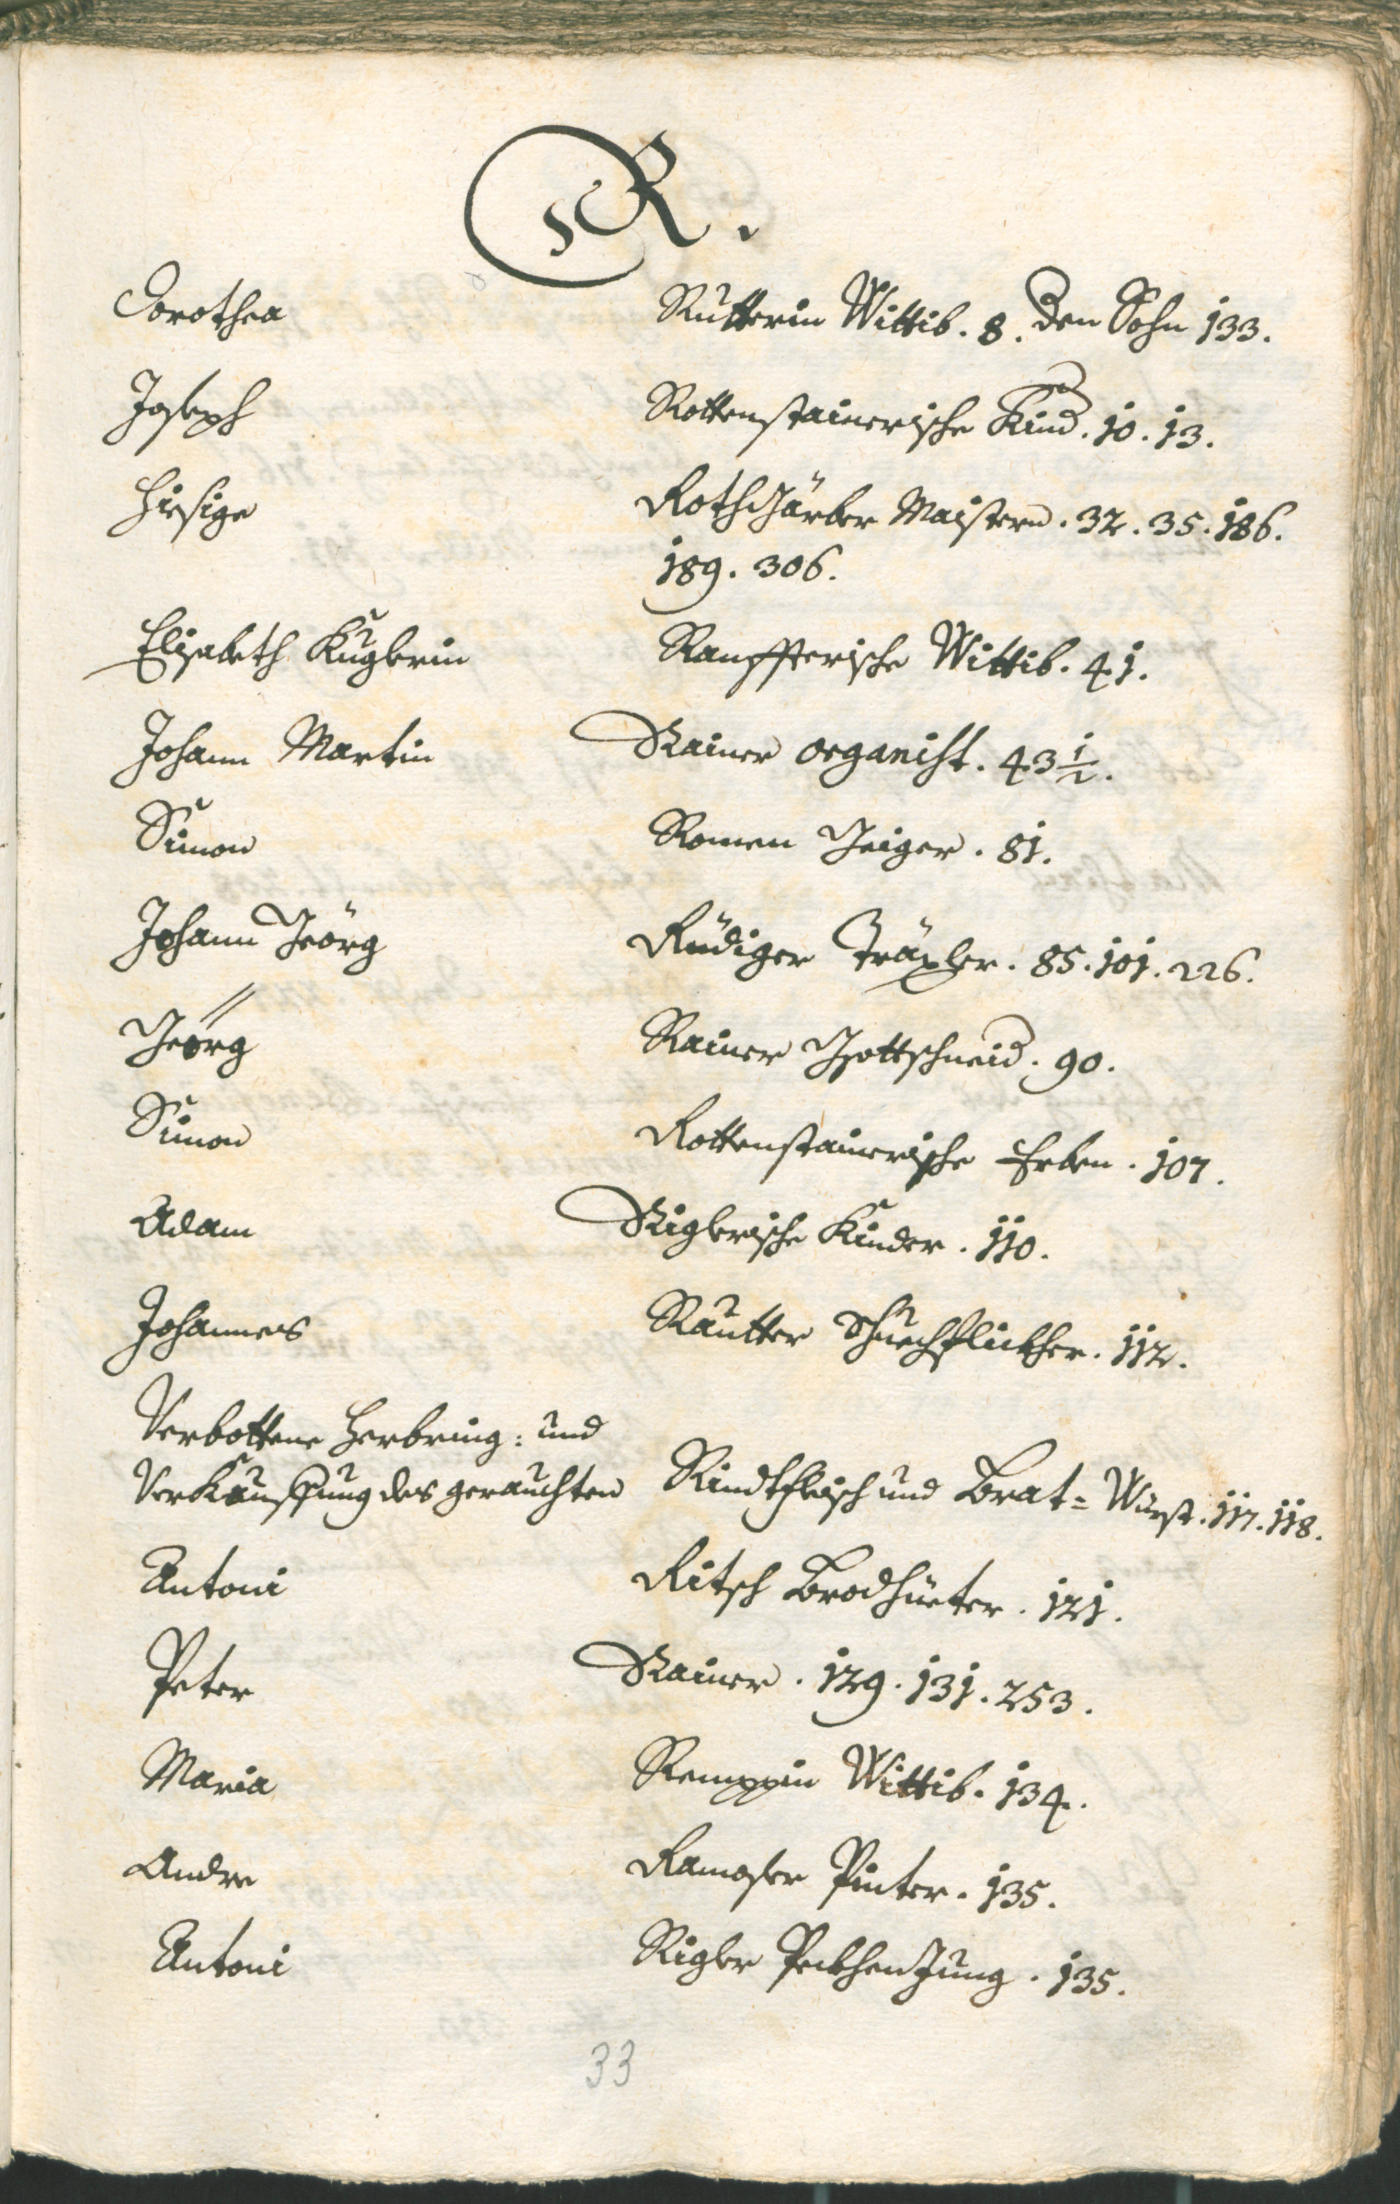 R.
Dorothea Rutterin Wittib. 8. den Sohn 133.
Joseph Rottenstainerische Kind. 10. 13.
Hiesige Rothgärber Maistern. 32. 35. 186.
189. 306.
Elisabeth Kuglerin Rampfterische Wittib. 41.
Johann Martin Rainer organist. 43 1/2.
Simon Romen Geiger. 81.
Johann Geörg Rüdiger Träxler. 85. 101. 226.
Geörg Rainer Gottschneid. 90.
Simon Rottenstainerische Erben. 107.
Adam Riglerische Kinder. 110.
Johannes Rautter Schuechflickher. 112.
Verbottene Herbring: und
Verkauffung des gerauchten Rindtfleisch und Brat= Würst. 117. 118.
Antoni Ritsch Brodhüeter. 121.
Peter Rainer. 129. 131. 253.
Maria Remppin Wittib. 134.
Andre Ramoser Pinter. 135.
Antoni Rigler Peckhen Jung. 135.
33